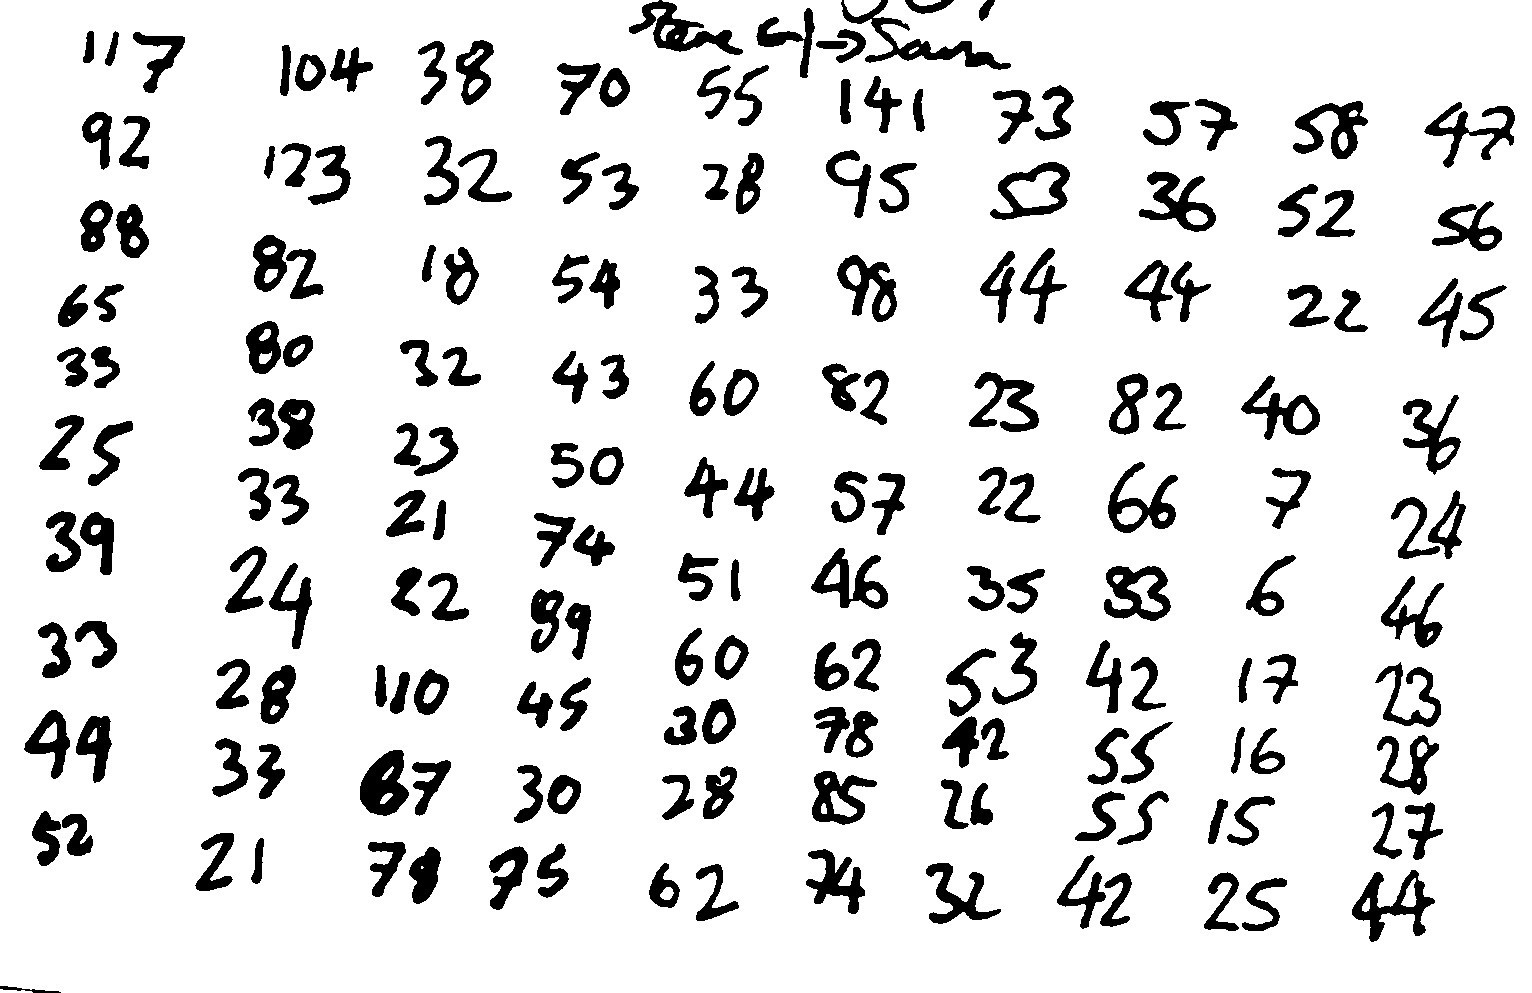 117 104 38 70 55 141 73 57 58 47
92 123 32 53 28 95 53 36 52 56
88 82 18 54 33 98 44 44 22 45
65 80 32 43 60 82 23 82 40 36
33 38 23 50 44 57 22 66 7 24
25 33 21 74 51 46 35 33 6 46
39 24 22 89 60 62 53 42 17 23
33 28 110 45 30 78 42 55 16 28
44 33 67 30 28 85 26 55 15 27
52 21 78 75 62 74 32 42 25 44